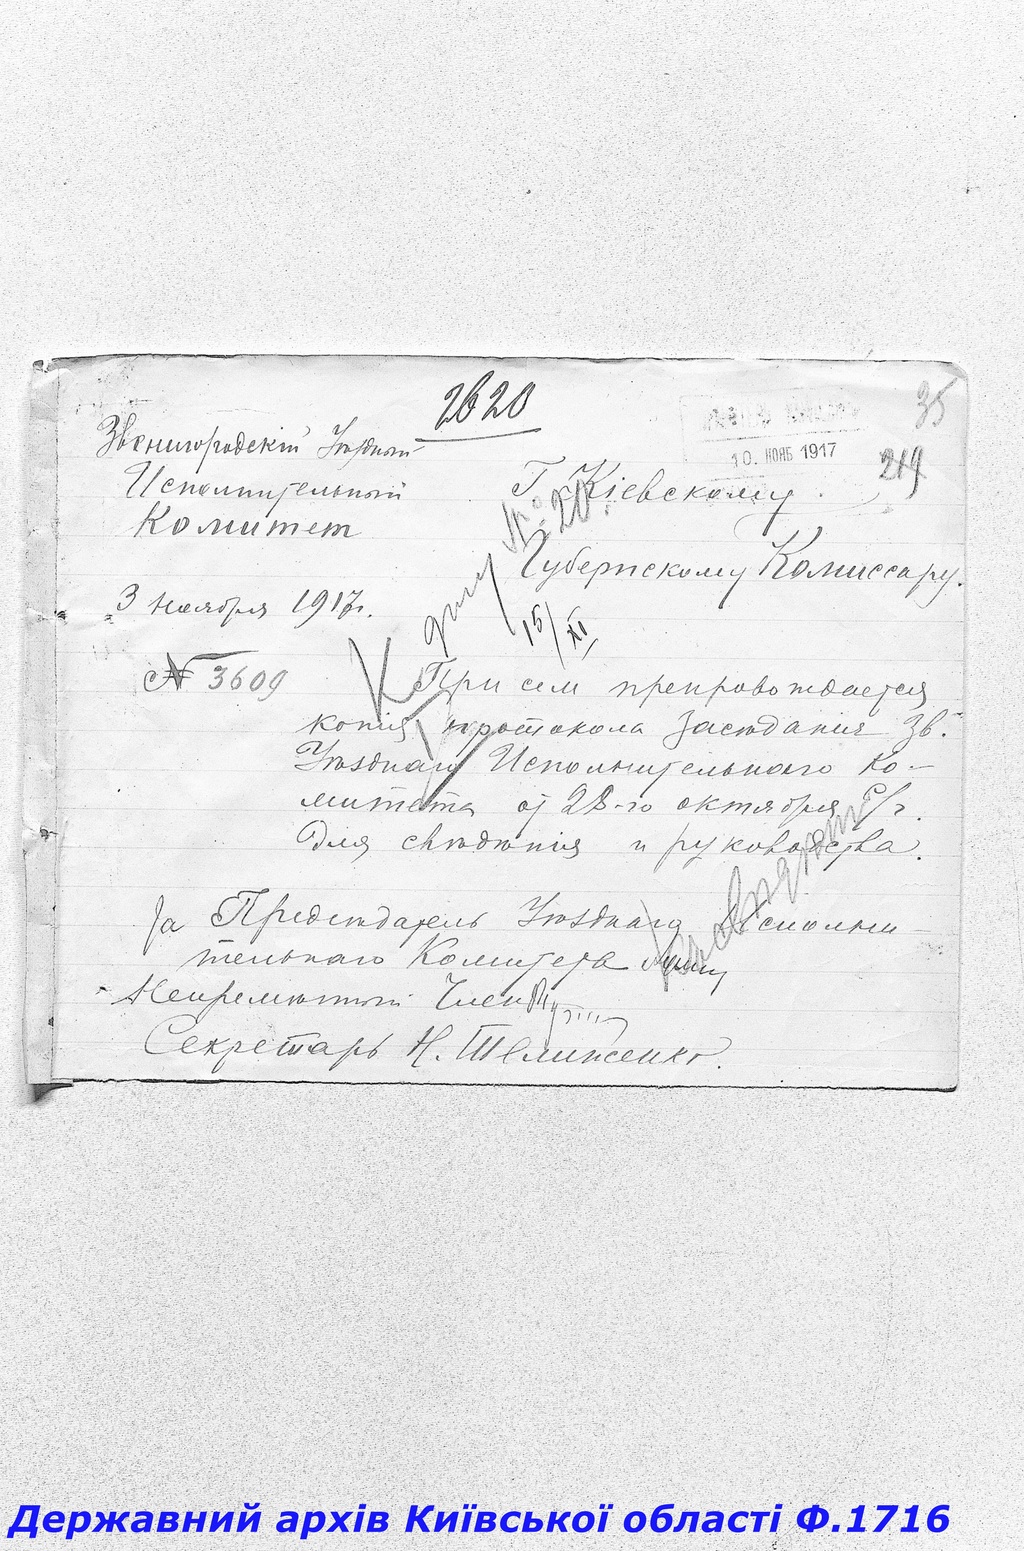 2620
35
10. НОЯБ 1917
219
Звенигородскій Уѣздный
Исполнительный
Комитет
Г. Кіевскому
Губернскому Комиссару.
3 ноября 1917 г.
К делу № 20.
15/XI
№ 3609
При сем препровождается
копія протокола Засѣданія Зв.
Уѣзднаго Исполнительнаго Ко-
митета от 28-го октября с/г.
для свѣдѣнія и руководства.
За Предсѣдатель Уѣзднаго Исполни-
тельнаго Комитета
Непремѣнный Член
Секретарь Н.
Державний архів Київської області Ф.1716